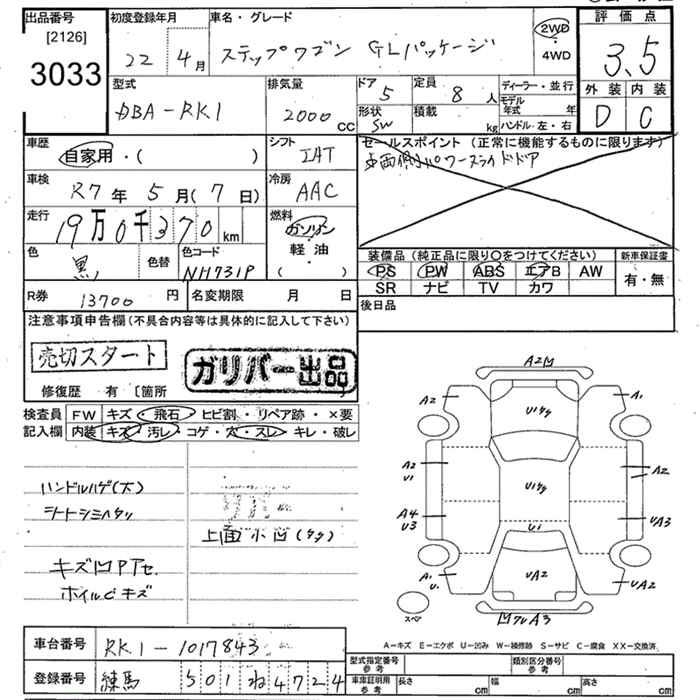 出品番号
[2126]
3033
初度登録年月
22 4月
車名・グレード
ステップワゴン GLパッケージ
2WD
・
4WD
評価点
3.5
外装 内装
D C
型式
DBA-RK1
排気量
2000 cc
ドア
5
形状
SW
定員
8 人
積載
kg
ディーラー・並行
モデル年式 年
ハンドル左・右
車歴
自家用・( )
シフト
IAT
セールスポイント (正常に機能するものに限ります)
両側パワースライドドア
車検
R7年5月(7日)
冷房
AAC
走行
19万0千370km
燃料
ガソリン
軽油
( )
色
黒
色替
色コード
NH731P
装備品(純正品に限り○をつけてください)
新車保証書
PS PW ABS エアB AW
SR ナビ TV カワ
有・無
R券 13700円
名変期限 月 日
後日品
注意事項申告欄(不具合内容等は具体的に記入して下さい)
売切スタート
ガリバー出品
修復歴 有 〔箇所
検査員記入欄
FW キズ・飛石・ヒビ割・リペア跡・×要
内装 キズ・汚レ・コゲ・穴・スレ・キレ・破レ
ハンドルハゲ(大)
シートシミヘタリ
上面小凹(タタ)
キズ凹PTセ
ホイルCキズ
A2凹
A2
A1
U1タタ
A2
U1
U1タタ
A2
A4
U3
U1
UA3
A1
U1
UA2
UA2
スペア
凹ワレA3
A-キズ E-エクボ U-凹み W-補修跡 S-サビ C-腐食 XX-交換済
車台番号
RK1-1017843
登録番号
練馬 501 ね 4724
型式指定番号
参考
類別区分番号
参考
車庫証明用
参考
長さ cm
幅 cm
高さ cm